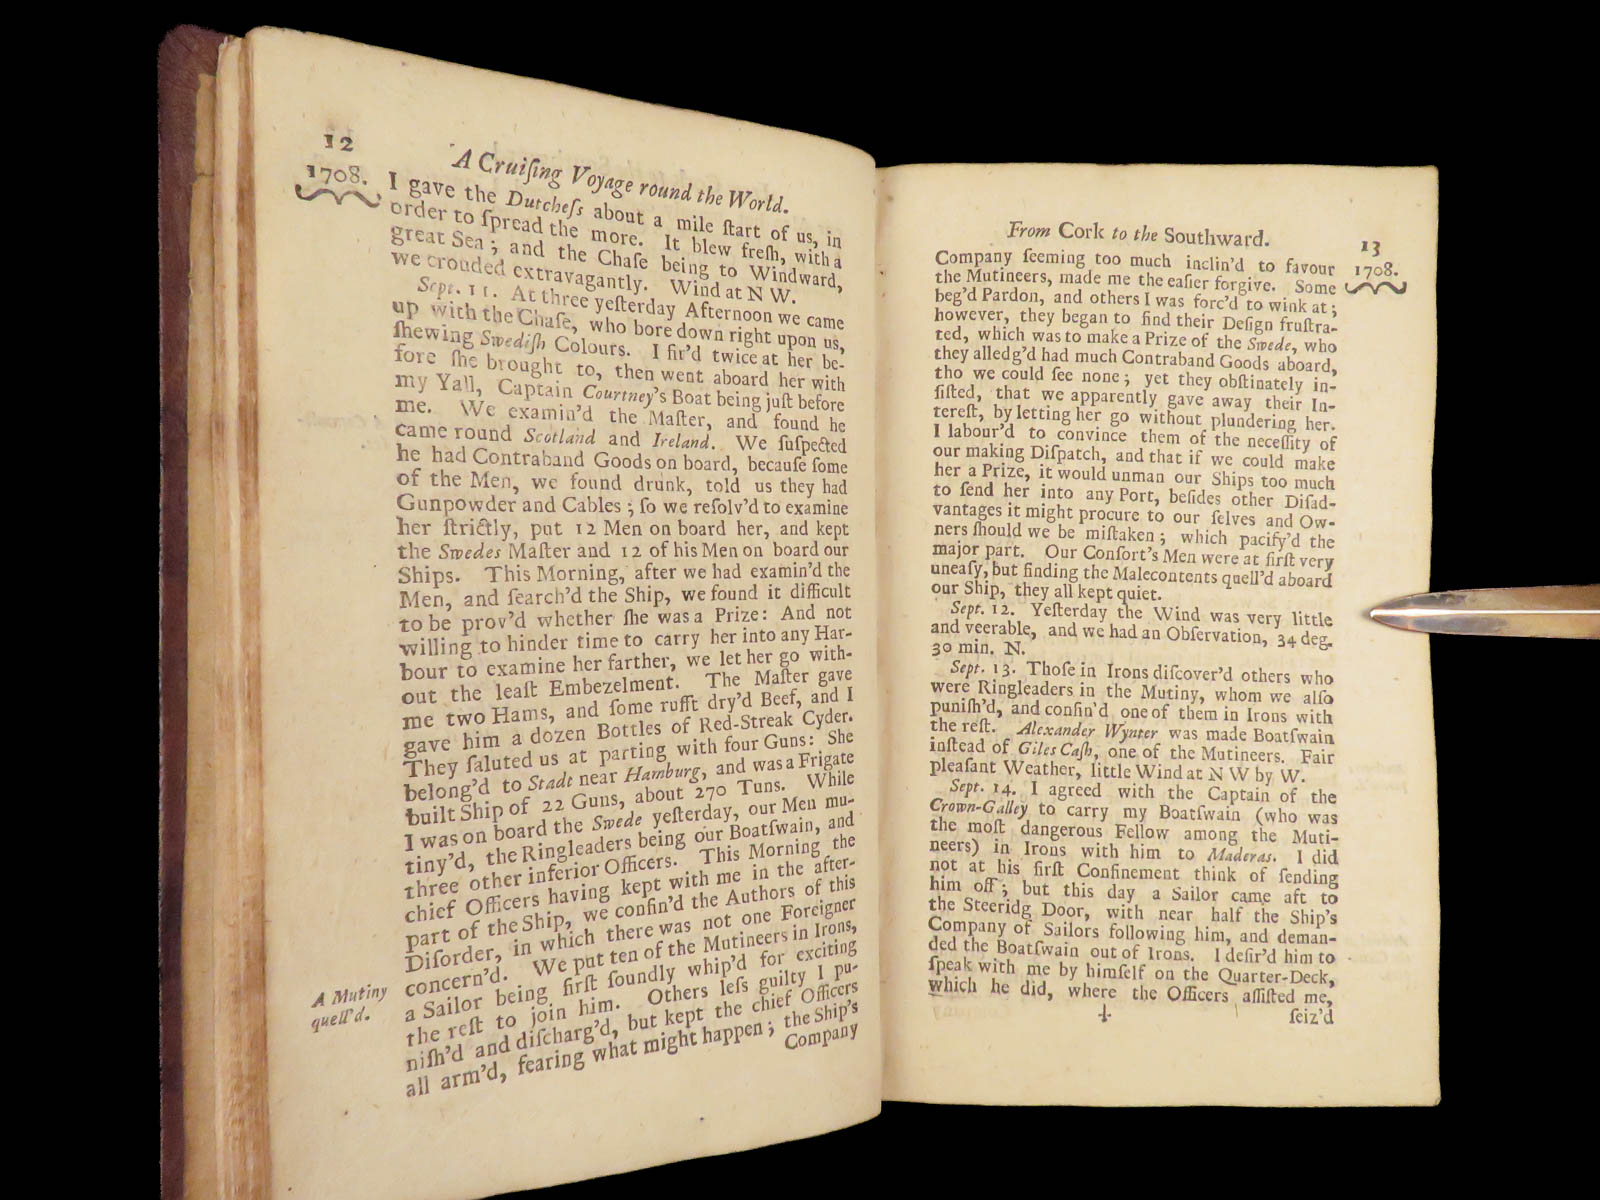 12
A Cruiſing Voyage round the World.
1708.
I gave the Dutcheſs about a mile ſtart of us, in
order to ſpread the more. It blew freſh, with a
great Sea; and the Chaſe being to Windward,
we crouded extravagantly. Wind at N W.
Sept. 11. At three yeſterday Afternoon we came
up with the Chaſe, who bore down right upon us,
ſhewing Swediſh Colours. I fir'd twice at her be-
fore ſhe brought to, then went aboard her with
my Yall, Captain Courtney's Boat being juſt before
me. We examin'd the Maſter, and found he
came round Scotland and Ireland. We ſuſpected
he had Contraband Goods on board, becauſe ſome
of the Men, we found drunk, told us they had
Gunpowder and Cables; ſo we reſolv'd to examine
her ſtrictly, put 12 Men on board her, and kept
the Swedes Maſter and 12 of his Men on board our
Ships. This Morning, after we had examin'd the
Men, and ſearch'd the Ship, we found it difficult
to be prov'd whether ſhe was a Prize: And not
willing to hinder time to carry her into any Har-
bour to examine her farther, we let her go with-
out the leaſt Embezelment. The Maſter gave
me two Hams, and ſome rufft dry'd Beef, and I
gave him a dozen Bottles of Red-Streak Cyder.
They ſaluted us at parting with four Guns: She
belong'd to Stadt near Hamburg, and was a Frigate
built Ship of 22 Guns, about 270 Tuns. While
I was on board the Swede yeſterday, our Men mu-
tiny'd, the Ringleaders being our Boatſwain, and
three other inferior Officers. This Morning the
chief Officers having kept with me in the after-
part of the Ship, we confin'd the Authors of this
Diſorder, in which there was not one Foreigner
concern'd. We put ten of the Mutineers in Irons,
a Sailor being firſt ſoundly whip'd for exciting
the reſt to join him. Others leſs guilty I pu-
niſh'd and diſcharg'd, but kept the chief Officers
all arm'd, fearing what might happen; the Ship's
Company
A Mutiny
quell'd.
From Cork to the Southward.
13
1708.
Company ſeeming too much inclin'd to favour
the Mutineers, made me the eaſier forgive. Some
beg'd Pardon, and others I was forc'd to wink at;
however, they began to find their Deſign fruſtra-
ted, which was to make a Prize of the Swede, who
they alledg'd had much Contraband Goods aboard,
tho we could ſee none; yet they obſtinately in-
ſiſted, that we apparently gave away their In-
tereſt, by letting her go without plundering her.
I labour'd to convince them of the neceſſity of
our making Diſpatch, and that if we could make
her a Prize, it would unman our Ships too much
to ſend her into any Port, beſides other Diſad-
vantages it might procure to our ſelves and Ow-
ners ſhould we be miſtaken; which pacify'd the
major part. Our Conſort's Men were at firſt very
uneaſy, but finding the Malecontents quell'd aboard
our Ship, they all kept quiet.
Sept. 12. Yeſterday the Wind was very little
and veerable, and we had an Obſervation, 34 deg.
30 min. N.
Sept. 13. Thoſe in Irons diſcover'd others who
were Ringleaders in the Mutiny, whom we alſo
puniſh'd, and confin'd one of them in Irons with
the reſt. Alexander Wynter was made Boatſwain
inſtead of Giles Caſh, one of the Mutineers. Fair
pleaſant Weather, little Wind at N W by W.
Sept. 14. I agreed with the Captain of the
Crown-Galley to carry my Boatſwain (who was
the moſt dangerous Fellow among the Muti-
neers) in Irons with him to Maderas. I did
not at his firſt Confinement think of ſending
him off; but this day a Sailor came aft to
the Steeridg Door, with near half the Ship's
Company of Sailors following him, and deman-
ded the Boatſwain out of Irons. I deſir'd him to
ſpeak with me by himſelf on the Quarter-Deck,
which he did, where the Officers aſſiſted me,
ſeiz'd